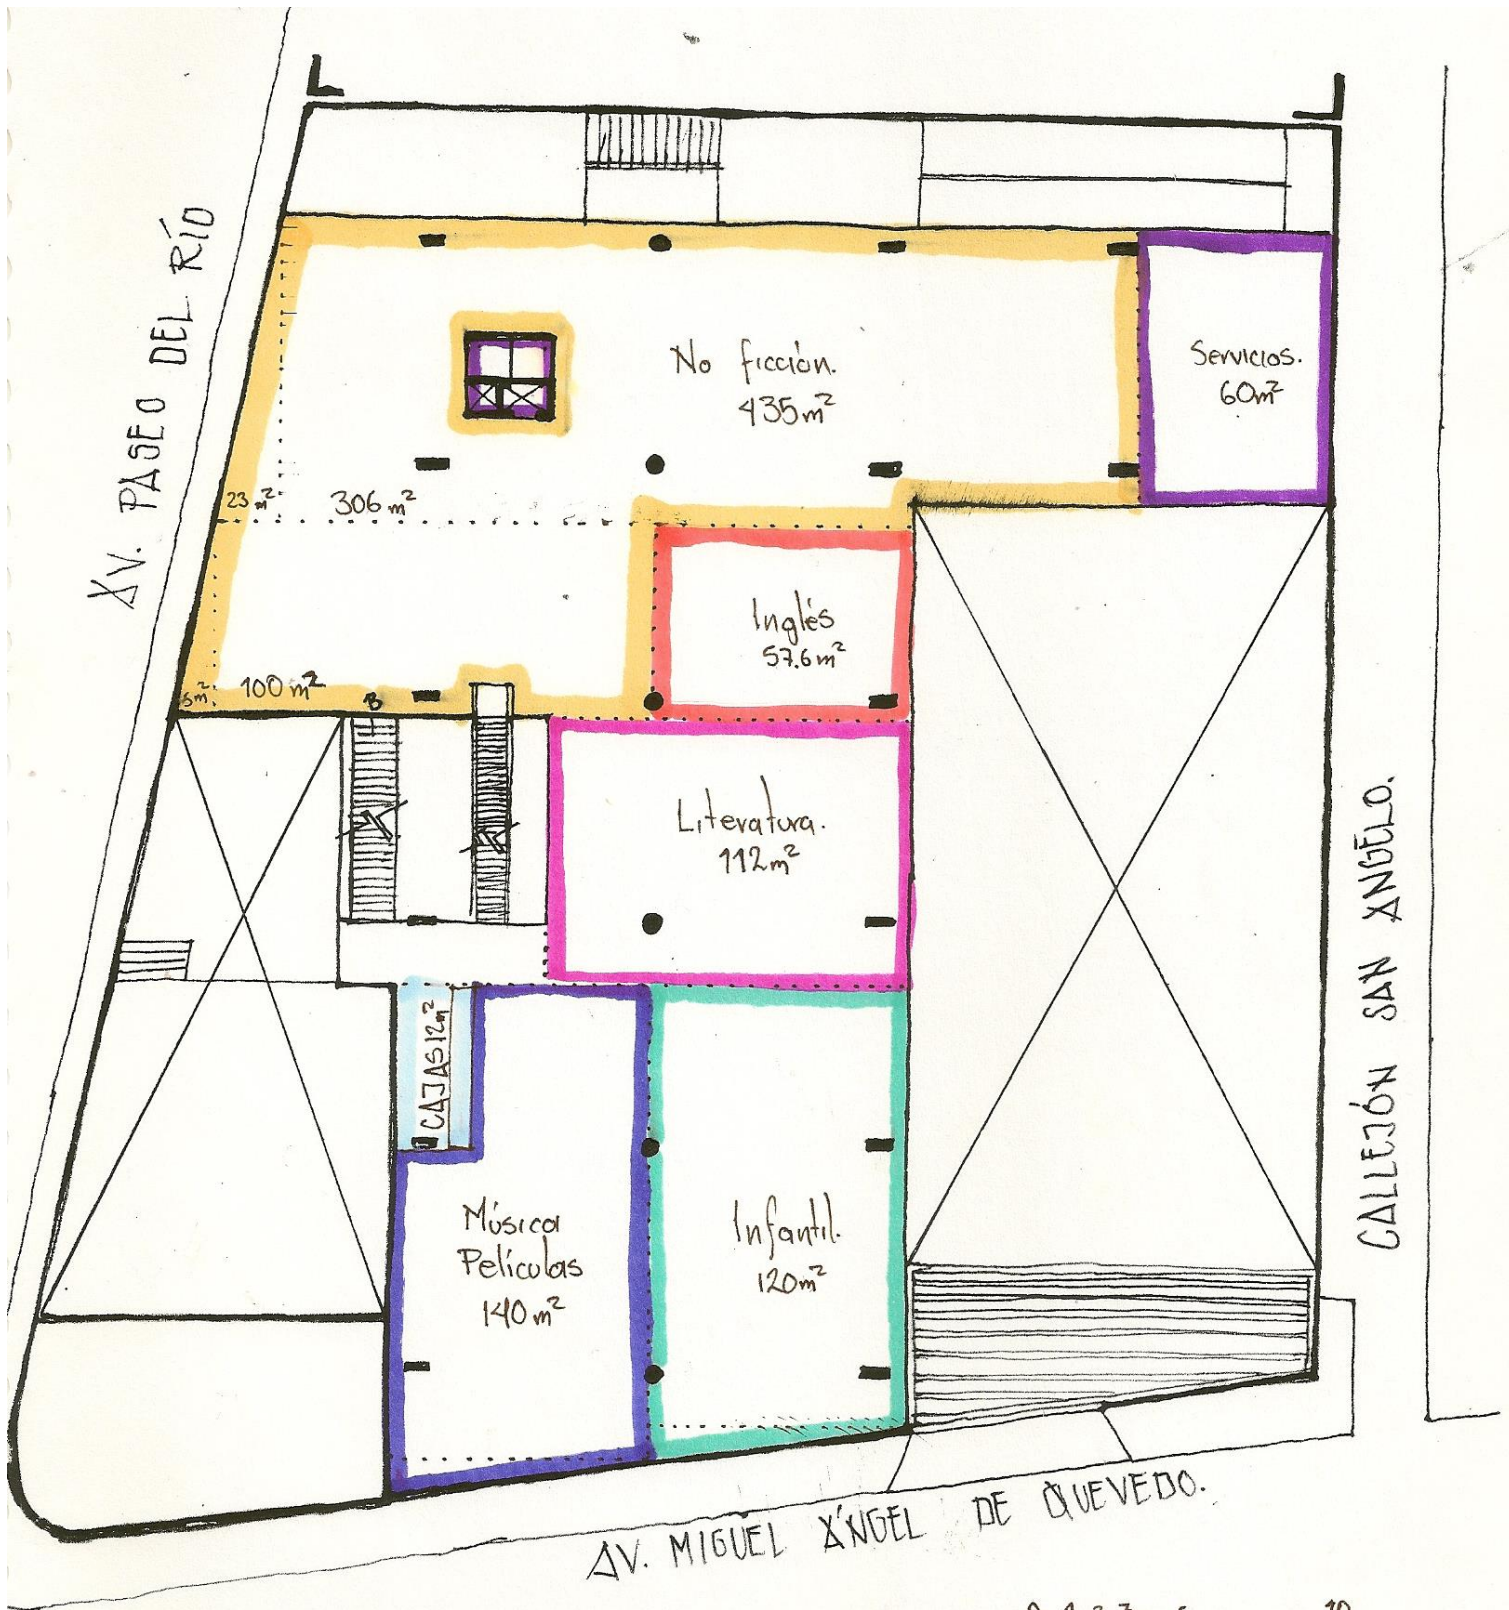 AV. PASEO DEL RÍO
No ficción.
435m²
Servicios.
60m²
23 m²
306 m²
Inglés
57.6m²
5m²
100m²
B
Literatura.
112m²
CAJAS 12m²
Música
Películas
140m²
Infantil.
120m²
CALLEJÓN SAN ANGELO.
AV. MIGUEL ÁNGEL DE QUEVEDO.